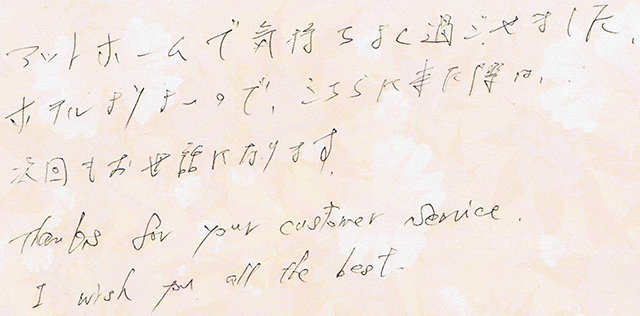 アットホームで気持ちよく過ごせました。
ホテルよりよいので、こちらに来た際は、
次回もお世話になります。
Thanks for your customer service.
I wish you all the best.